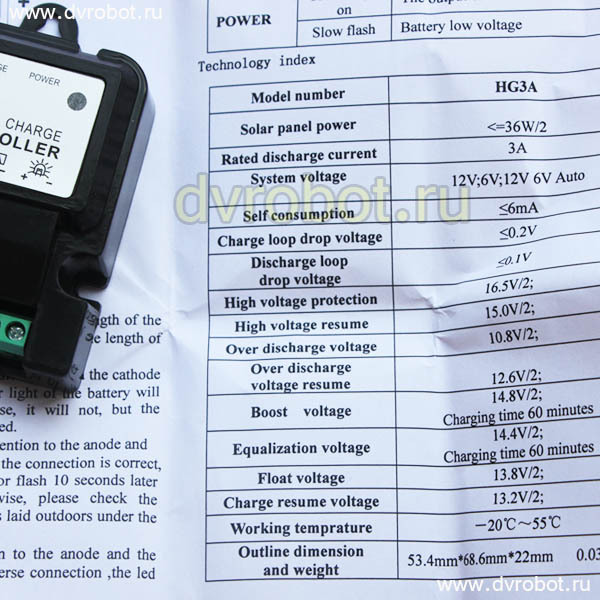 www.dvrobot.ru
www.dvrobot.ru
POWER
on
Slow flash Battery low voltage
Technology index
POWER
CHARGE
Model number HG3A
Solar panel power <=36W/2
Rated discharge current 3A
System voltage 12V;6V;12V 6V Auto
dvrobot.ru
Self consumption ≤6mA
Charge loop drop voltage ≤0.2V
Discharge loop
drop voltage ≤0.1V
High voltage protection 16.5V/2;
High voltage resume 15.0V/2;
Over discharge voltage 10.8V/2;
Over discharge
voltage resume 12.6V/2;
Boost voltage 14.8V/2;
Charging time 60 minutes
Equalization voltage 14.4V/2;
Charging time 60 minutes
Float voltage 13.8V/2;
Charge resume voltage 13.2V/2;
Working temprature －20℃～55℃
Outline dimension
and weight 53.4mm*68.6mm*22mm
of the
length of
the cathode
light of the battery will
it will not, but the
to the anode and
the connection is correct,
or flash 10 seconds later
please check the
laid outdoors under the
to the anode and the
connection ,the led
www.dvrobot.ru
www.dvrobot.ru